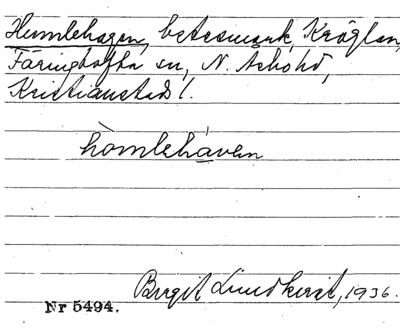 Humlehagen, betesmark, Kröglan,
Färinghofta sn, N. Åsbohd,
Kristianstad l.
hòmlehávan
Birgit Lindkvist, 1936.
Nr 5494.